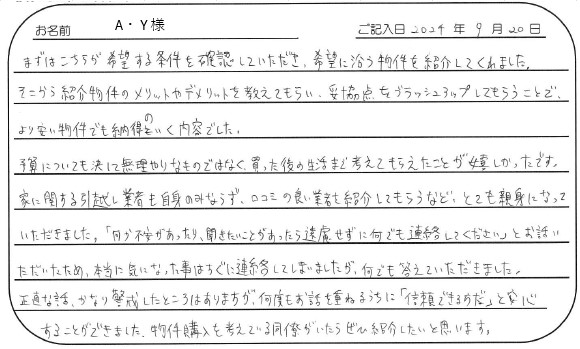 お名前 A・Y様 ご記入日 2024 年 9 月 20 日
まずはこちらが希望する条件を確認していただき、希望に沿う物件を紹介してくれました。
そこから紹介物件のメリットやデメリットを教えてもらい、妥協点をブラッシュアップしてもらうことで、
より安い物件でも納得のいく内容でした。
予算についても決して無理やりなものではなく、買った後の生活まで考えてもらえたことが嬉しかったです。
家に関する引越し業者も自身のみならず、口コミの良い業者も紹介してもらうなど、とても親身になって
いただきました。「何か不安があったり、聞きたいことがあったら遠慮せずに何でも連絡してください」とお話い
ただいたため、本当に気になった事はすぐに連絡してしまいましたが、何でも答えていただきました。
正直な話、かなり警戒したところはありますが、何度もお話を重ねるうちに「信頼できるのだ」と安心
することができました。物件購入を考えている同僚がいたらぜひ紹介したいと思います。